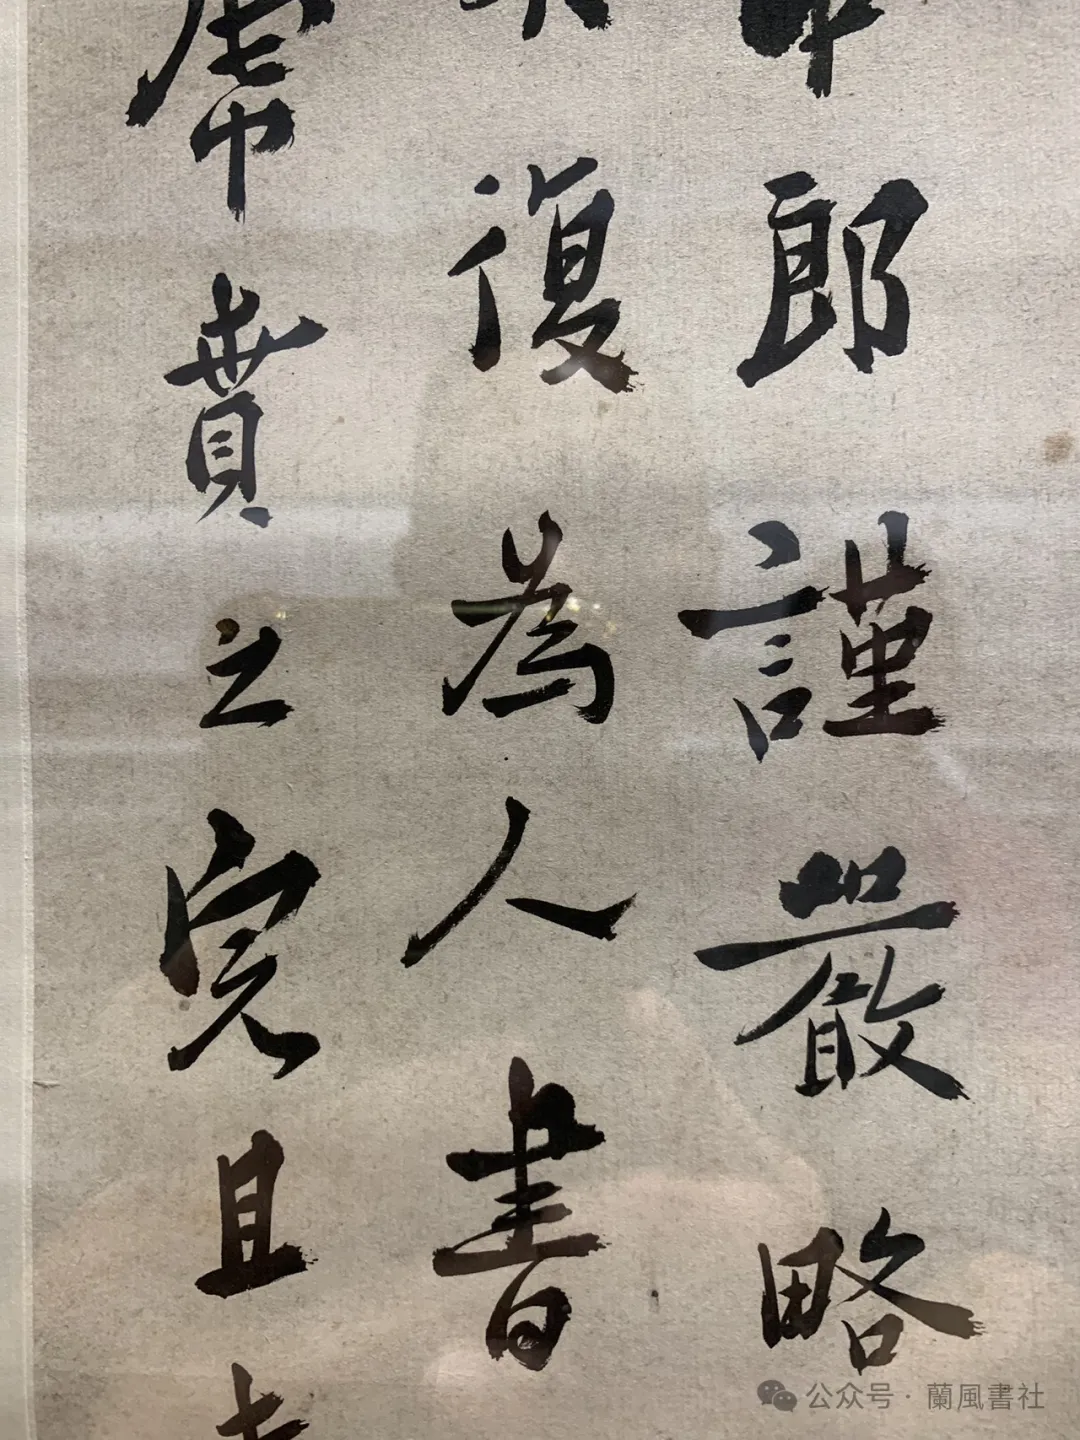 中郎謹嚴略
復為人書
虎賁之完且
公众号 · 蘭風書社